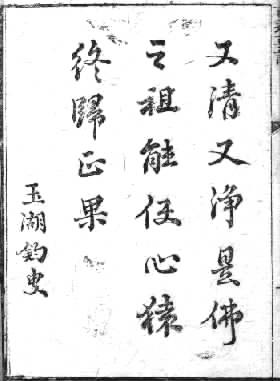 又清又淨是佛
之祖能使心猿
終歸正果
玉湖釣叟